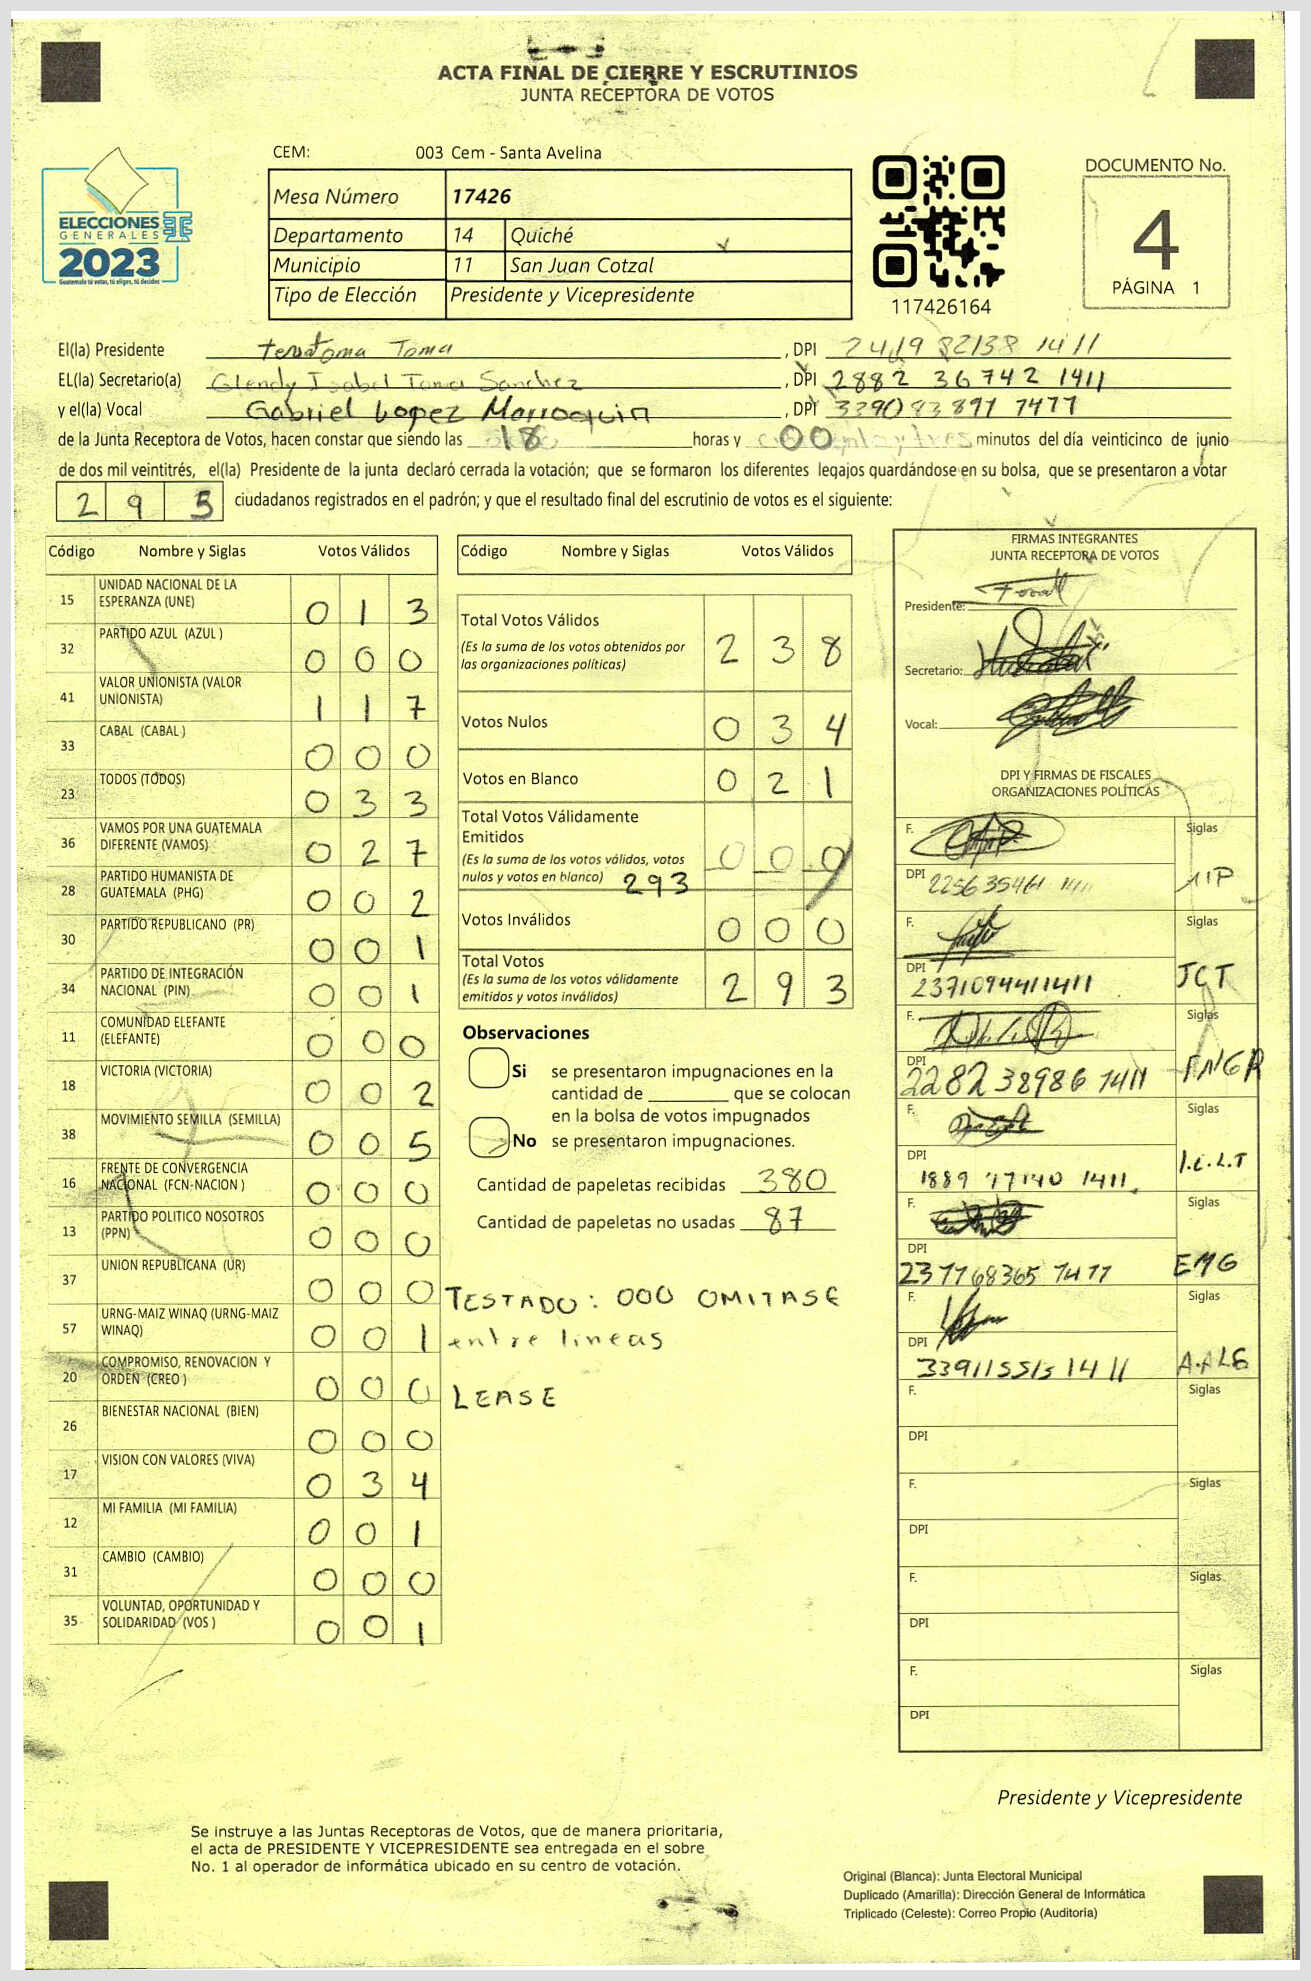 ACTA FINAL DE CIERRE Y ESCRUTINIOS
JUNTA RECEPTORA DE VOTOS
CEM: 003 Cem - Santa Avelina
ELECCIONES
GENERALES
2023
Guatemala tú votas, tú eliges, tú decides
Mesa Número 17426
Departamento 14 Quiché
Municipio 11 San Juan Cotzal
Tipo de Elección Presidente y Vicepresidente
117426164
DOCUMENTO No.
4
PÁGINA 1
El(la) Presidente Toma Toma , DPI 1411
EL(la) Secretario(a) Glendy Isabel Toma Sanchez , DPI 2882 36742 1411
y el(la) Vocal Gabriel Lopez Marroquin , DPI
de la Junta Receptora de Votos, hacen constar que siendo las 18 horas y 00 minutos del día veinticinco de junio
de dos mil veintitrés, el(la) Presidente de la junta declaró cerrada la votación; que se formaron los diferentes legajos quardándose en su bolsa, que se presentaron a votar
2 9 ciudadanos registrados en el padrón; y que el resultado final del escrutinio de votos es el siguiente:
Código Nombre y Siglas Votos Válidos
15 UNIDAD NACIONAL DE LA ESPERANZA (UNE) 0 1 3
32 PARTIDO AZUL (AZUL ) 0 0 0
41 VALOR UNIONISTA (VALOR UNIONISTA) 1 1 7
33 CABAL (CABAL ) 0 0 0
23 TODOS (TODOS) 0 3 3
36 VAMOS POR UNA GUATEMALA DIFERENTE (VAMOS) 0 2 7
28 PARTIDO HUMANISTA DE GUATEMALA (PHG) 0 0 2
30 PARTIDO REPUBLICANO (PR) 0 0 1
34 PARTIDO DE INTEGRACIÓN NACIONAL (PIN) 0 0 1
11 COMUNIDAD ELEFANTE (ELEFANTE) 0 0 0
18 VICTORIA (VICTORIA) 0 0 2
38 MOVIMIENTO SEMILLA (SEMILLA) 0 0 5
16 FRENTE DE CONVERGENCIA NACIONAL (FCN-NACION ) 0 0 0
13 PARTIDO POLITICO NOSOTROS (PPN) 0 0 0
37 UNION REPUBLICANA (UR) 0 0 0
57 URNG-MAIZ WINAQ (URNG-MAIZ WINAQ) 0 0 1
20 COMPROMISO, RENOVACION Y ORDEN (CREO ) 0 0 0
26 BIENESTAR NACIONAL (BIEN) 0 0 0
17 VISION CON VALORES (VIVA) 0 3 4
12 MI FAMILIA (MI FAMILIA) 0 0 1
31 CAMBIO (CAMBIO) 0 0 0
35 VOLUNTAD, OPORTUNIDAD Y SOLIDARIDAD (VOS ) 0 0 1
Código Nombre y Siglas Votos Válidos
Total Votos Válidos 2 3 8
(Es la suma de los votos obtenidos por
las organizaciones políticas)
Votos Nulos 0 3 4
Votos en Blanco 0 2 1
Total Votos Válidamente
Emitidos 0 0 0
(Es la suma de los votos válidos, votos
nulos y votos en blanco) 293
Votos Inválidos 0 0 0
Total Votos 2 9 3
(Es la suma de los votos válidamente
emitidos y votos inválidos)
Observaciones
Si se presentaron impugnaciones en la
cantidad de ________ que se colocan
en la bolsa de votos impugnados
No se presentaron impugnaciones.
Cantidad de papeletas recibidas 380
Cantidad de papeletas no usadas 87
TESTADO: 000 OMITASE
entre lineas
LEASE
FIRMAS INTEGRANTES
JUNTA RECEPTORA DE VOTOS
Presidente:
Secretario:
Vocal:
DPI Y FIRMAS DE FISCALES
ORGANIZACIONES POLÍTICAS
F. Siglas
DPI
F. Siglas
DPI JCT
F. Siglas
DPI 2282 38986 1411
F. Siglas
DPI 1411 I.C.L.T
F. Siglas
DPI EMG
F. Siglas
DPI A.ALG
F. Siglas
DPI
F. Siglas
DPI
F. Siglas
DPI
F. Siglas
DPI
Presidente y Vicepresidente
Se instruye a las Juntas Receptoras de Votos, que de manera prioritaria,
el acta de PRESIDENTE Y VICEPRESIDENTE sea entregada en el sobre
No. 1 al operador de informática ubicado en su centro de votación.
Original (Blanca): Junta Electoral Municipal
Duplicado (Amarilla): Dirección General de Informática
Triplicado (Celeste): Correo Propio (Auditoria)